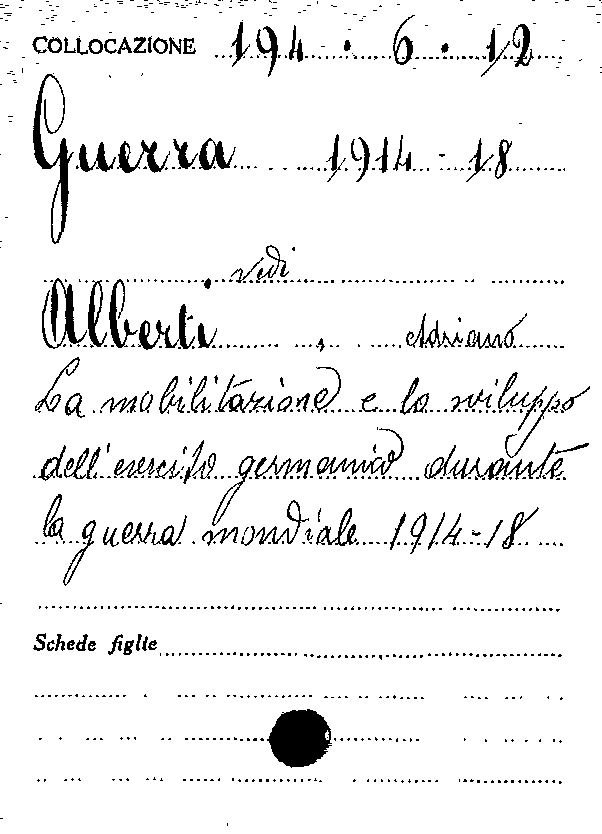 COLLOCAZIONE 194 · 6 · 12
Guerra 1914 - 18
vedi
Alberti, Adriano
La mobilitazione e lo sviluppo
dell'esercito germanico durante
la guerra mondiale 1914-18
Schede figlie